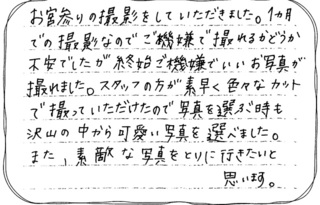 お宮参りの撮影をしていただきました。1カ月
での撮影なのでご機嫌で撮れるかどうか
不安でしたが終始ご機嫌でいいお写真が
撮れました。スタッフの方が素早く色々なカット
で撮っていただけたので写真を選ぶ時も
沢山の中から可愛い写真を選べました。
また、素敵な写真をとりに行きたいと
思います。